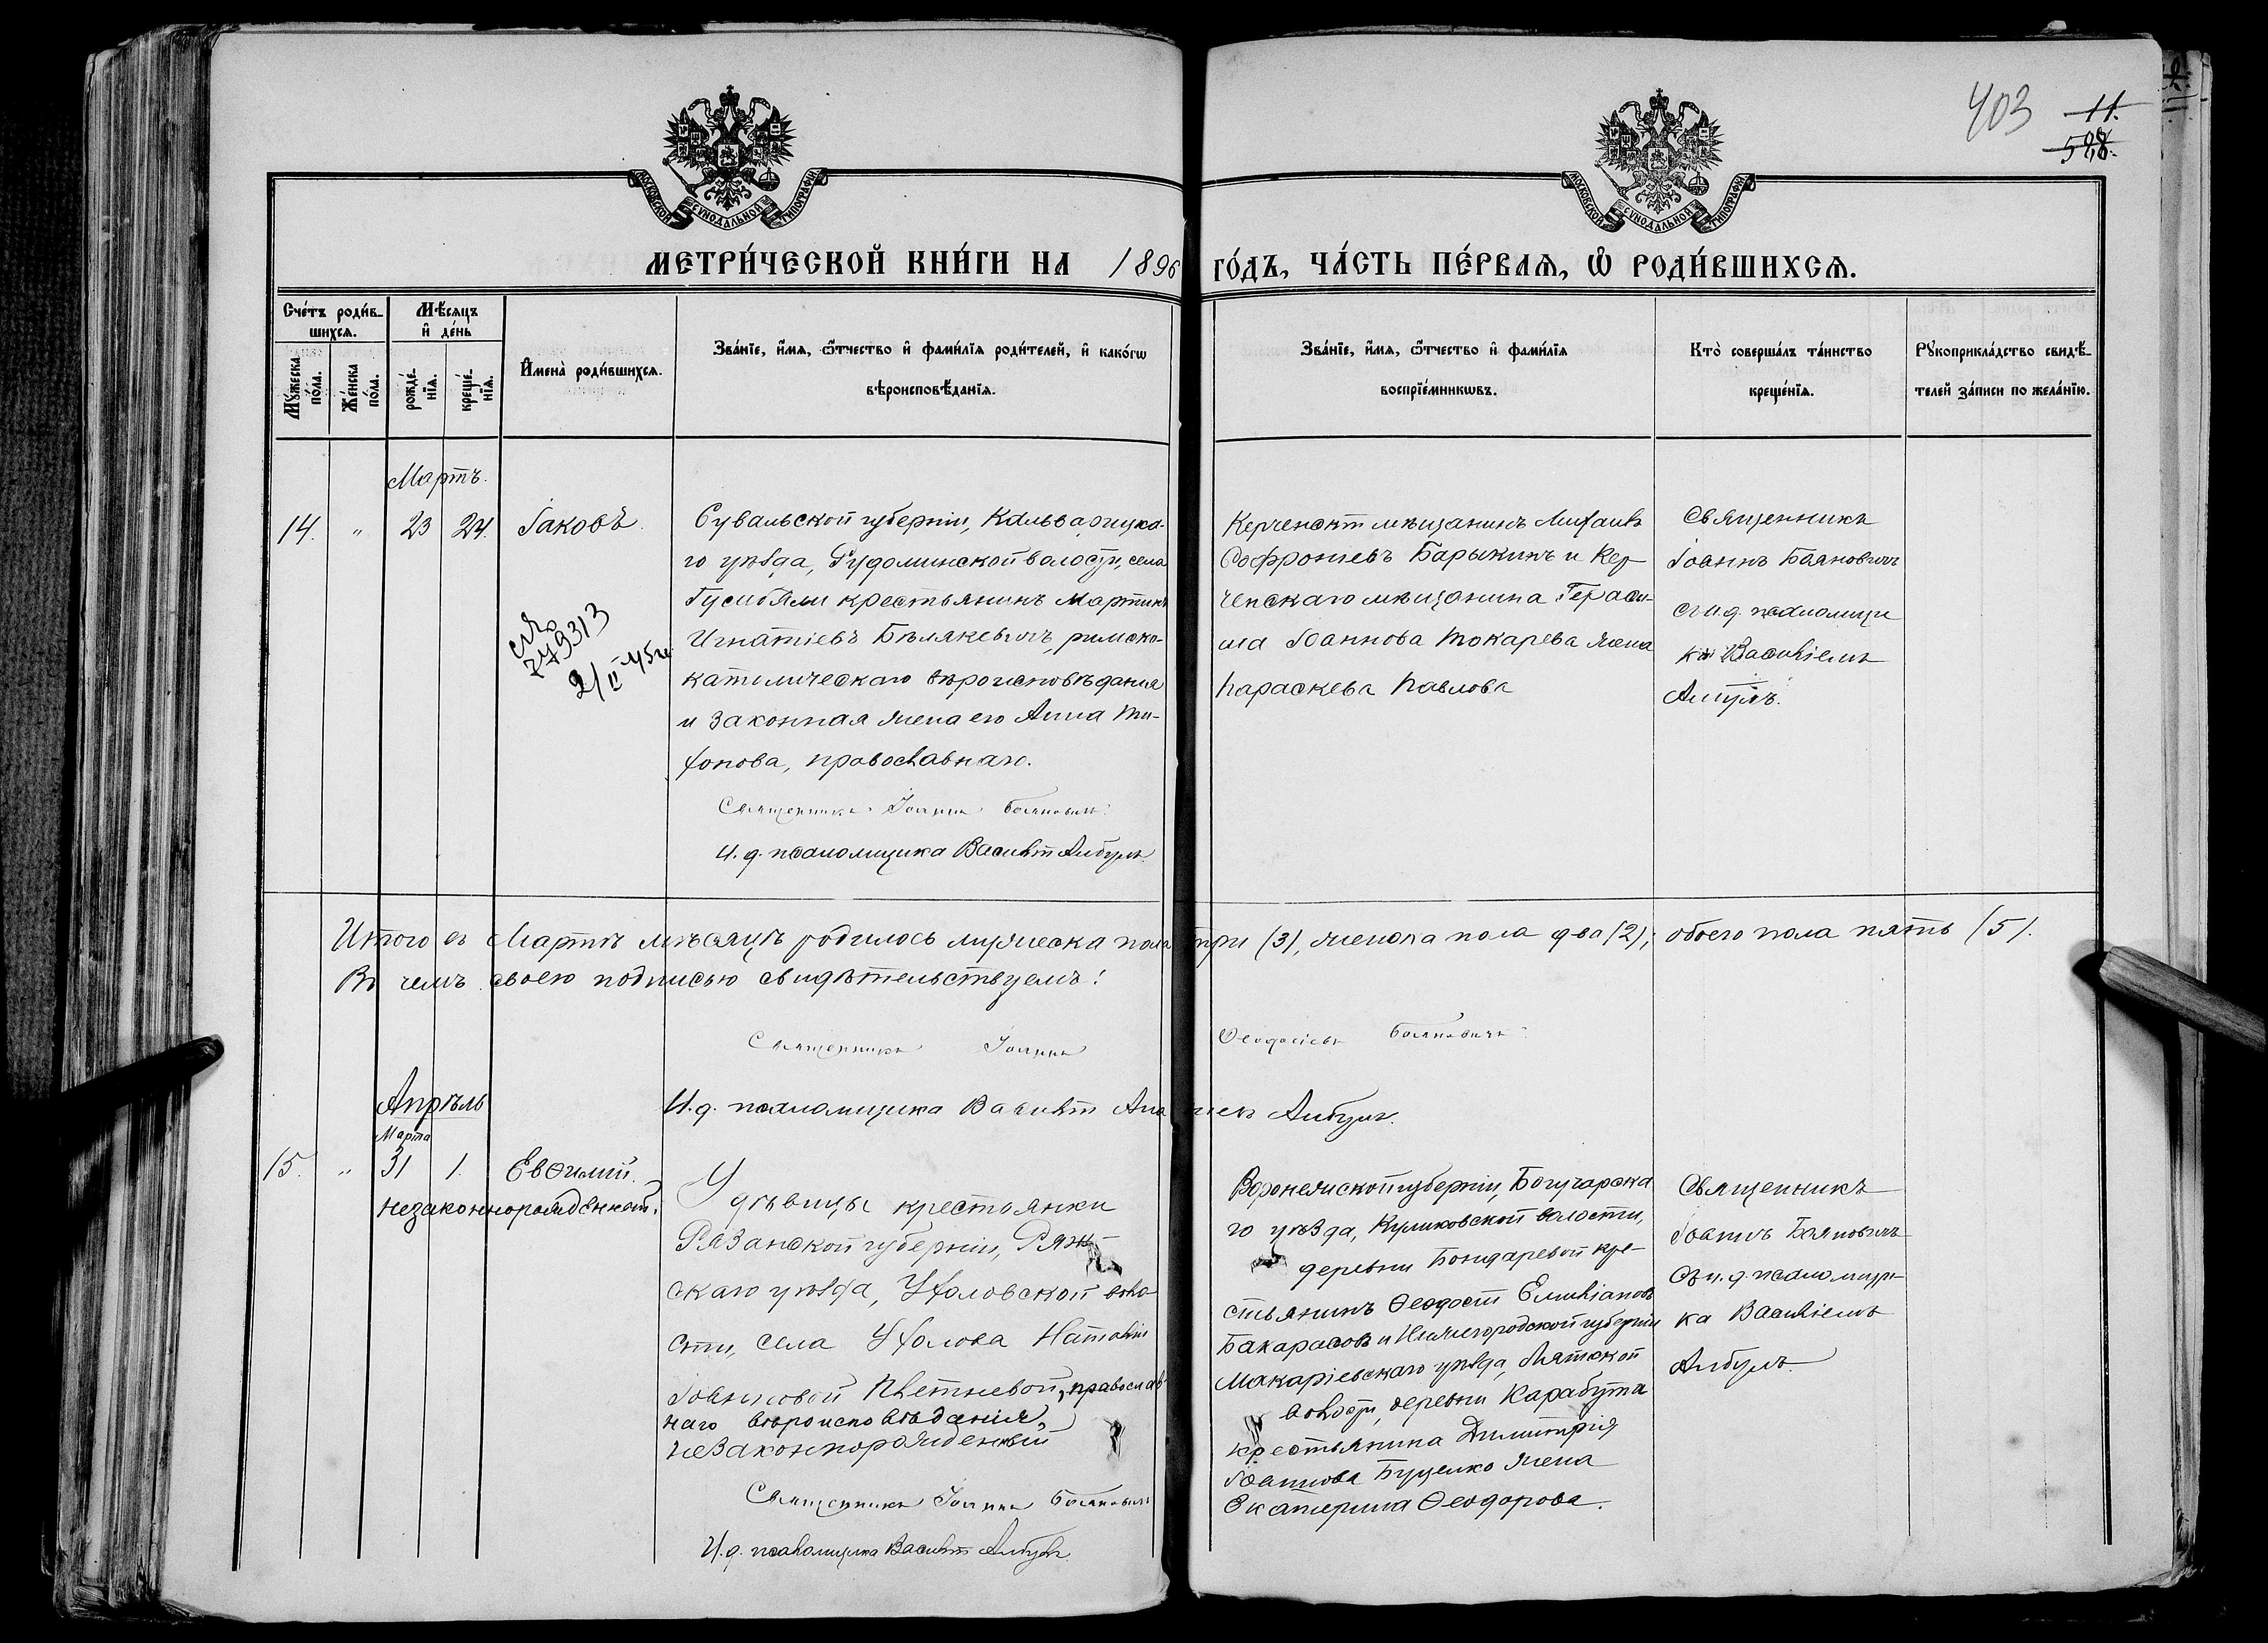 403 11.
588.
МОСКОВСКОЙ СѴНОДАЛЬНОЙ ТИПОГРАФІИ
МОСКОВСКОЙ СѴНОДАЛЬНОЙ ТИПОГРАФІИ
МЕТРИ́ЧЕСКОЙ КНИ́ГИ НА 1896 ГО́ДЪ, ЧА́СТЬ ПЕ́РВАѦ, Ѽ РОДИ́ВШИХСѦ.
Сче́тъ роди́в-
шихсѧ.
Мꙋ́жеска по́ла.
Же́нска по́ла.
Мѣ́сѧцъ
и҆ де́нь
рожде́-
нїѧ.
креще́-
нїѧ.
И҆мена̀ роди́вшихсѧ.
Зва́нїе, и҆́мѧ, ѻ҆́тчество и҆ фами́лїѧ роди́телей, и҆ како́гѡ
вѣроисповѣ́данїѧ.
Зва́нїе, и҆́мѧ, ѻ҆́тчество и҆ фами́лїѧ
воспрїе́мникѡвъ.
Кто̀ соверша́лъ та́инство
креще́нїѧ.
Рꙋкоприкла́дство свидѣ́-
телей за́писи по жела́нїю.
Мартъ.
14. " 23 24. Іаковъ.
749313
2/II 45 г.
Сувальской губерніи, Кальварійска-
го уѣзда, Рудоминской волости, села
Гусибяли крестьянинъ Мартинъ
Игнатіевъ Бѣлякевичъ, римско-
католическаго вѣроисповѣданія
и законная жена его Анна Ти-
хонова, православнаго.
Священникъ Іоаннъ Бояновичъ
И. д. псаломщика Василій Албулъ
Керченскій мѣщанинъ Михаилъ
Софроніевъ Барыкинъ и Кер-
ченскаго мѣщанина Гераси-
ма Іоаннова Токарева жена
Параскева Павлова
Священникъ
Іоаннъ Бояновичъ
съ и. д. псаломщи
ка Василіемъ
Албулъ.
Итого въ Мартѣ мѣсяцѣ родилось мужеска пола три (3), женска пола два (2); обоего пола пять (5).
Въ чемъ своею подписью свидѣтельствуемъ:
Священникъ Іоаннъ Ѳеодосіевъ Бояновичъ
И. д. псаломщика Василій Албулъ.
Апрѣль
Марта
15. " 31 1. Евѳимій.
незаконнорожденный.
У дѣвицы крестьянки
Рязанской губерніи, Ряж-
скаго уѣзда, Ухоловской воло
сти, села Ухолова Наталіи
Іоанновой Цвѣтневой, православ-
наго вѣроисповѣданія,
незаконнорожденный
Священникъ Іоаннъ Бояновичъ
И. д. псаломщика Василій Албулъ
Воронежской губерніи, Богучарска
го уѣзда, Куликовской волости,
деревни Бондаревой кре-
стьянинъ Ѳеодосій Емиліановъ
Бакарасовъ и Нижегородской губерніи
Макаріевскаго уѣзда,
волости, деревни Карабута
крестьянина Димитрія
Іоаннова Буценко жена
Екатерина Ѳеодорова.
Священникъ
Іоаннъ Бояновичъ
Съ и. д. псаломщи-
ка Василіемъ
Албулъ